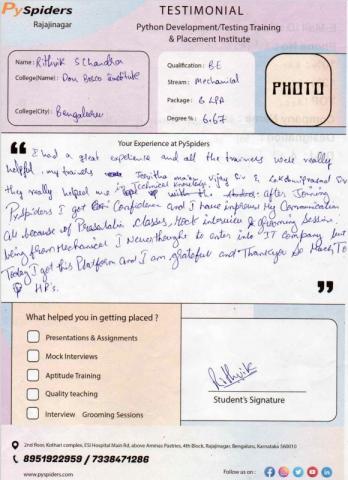 PySpiders
Rajajinagar
TESTIMONIAL
Python Development/Testing Training
& Placement Institute
Name: Rithvik S Chandra
College(Name): Don Bosco Institute
College(City): Bengaluru
Qualification: BE
Stream: Mechanical
Package: 6 LPA
Degree %: 6.67
PHOTO
Your Experience at PySpiders
I had a great experience and all the trainers were really
helpful. my trainers mam, Vijay Sir & Lakshmi Prasad Sir
they really helped me in Technical Knowledge. After Joining
PySpiders I got Confidence and I have improved My Communication
all because of Presentation classes, Mock interview & grooming Session.
being from Mechanical I Never thought to enter into IT company but
Today I got this Platform and I am grateful and Thankyou So Much To
HP's.
What helped you in getting placed ?
Presentations & Assignments
Mock Interviews
Aptitude Training
Quality teaching
Interview Grooming Sessions
Rithvik
Student's Signature
2nd Floor, Kothari complex, ESI Hospital Main Rd, above Ammas Pastries, 4th Block, Rajajinagar, Bengaluru, Karnataka 560010
8951922959 / 7338471286
www.pyspiders.com
Follow us on :